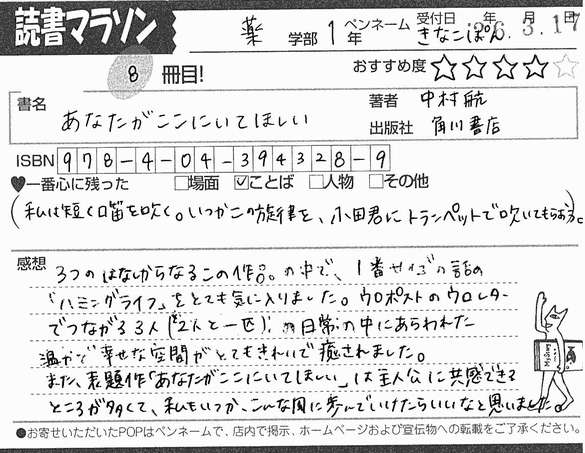 読書マラソン
薬 学部 1年 ペンネーム きなこぽん 受付日 年 月 日 '26.3.17
8 冊目!
おすすめ度 ★★★★☆
書名 あなたがここにいてほしい
著者 中村航
出版社 角川書店
ISBN 978-4-04-394328-9
♥一番心に残った □場面 ☑ことば □人物 □その他
(私は短く口笛を吹く。いつかこの旋律を、小田君にトランペットで吹いてもらおう。)
感想 3つのはなしからなるこの作品。の中で、1番サイゴの話の
「ハミングライフ」をとても気に入りました。ウロポストのウロレター
でつながる3人(2人と一匹)。日常の中にあらわれた
温かで幸せな空間がとてもきれいで癒されました。
また、表題作「あなたがここにいてほしい」は主人公に共感できる
ところが多くて、私もいつか、こんな風に歩んでいけたらいいなと思いました。
●お寄せいただいたPOPはペンネームで、店内で掲示、ホームページおよび宣伝物への転載をご了承ください。